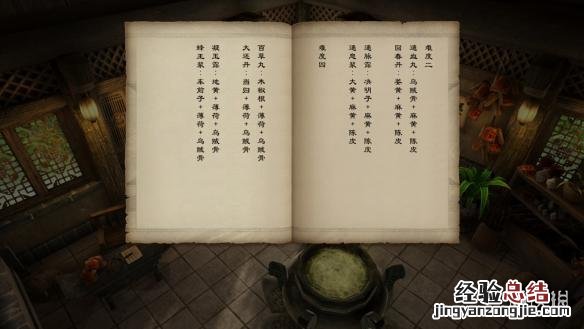 难度二
通血丸：乌贼骨+麻黄+陈皮
回春丹：茶黄+麻黄+陈皮
通脉露：决明子+麻黄+陈皮
通息浆：大黄+麻黄+陈皮
难度四
百草丸：木椒根+薄荷+乌贼骨
大还丹：当归+薄荷+乌贼骨
凝玉露：地黄+薄荷+乌贼骨
蜂王浆：车前子+薄荷+乌贼骨
经验总结
www.jingyanzongjie.com